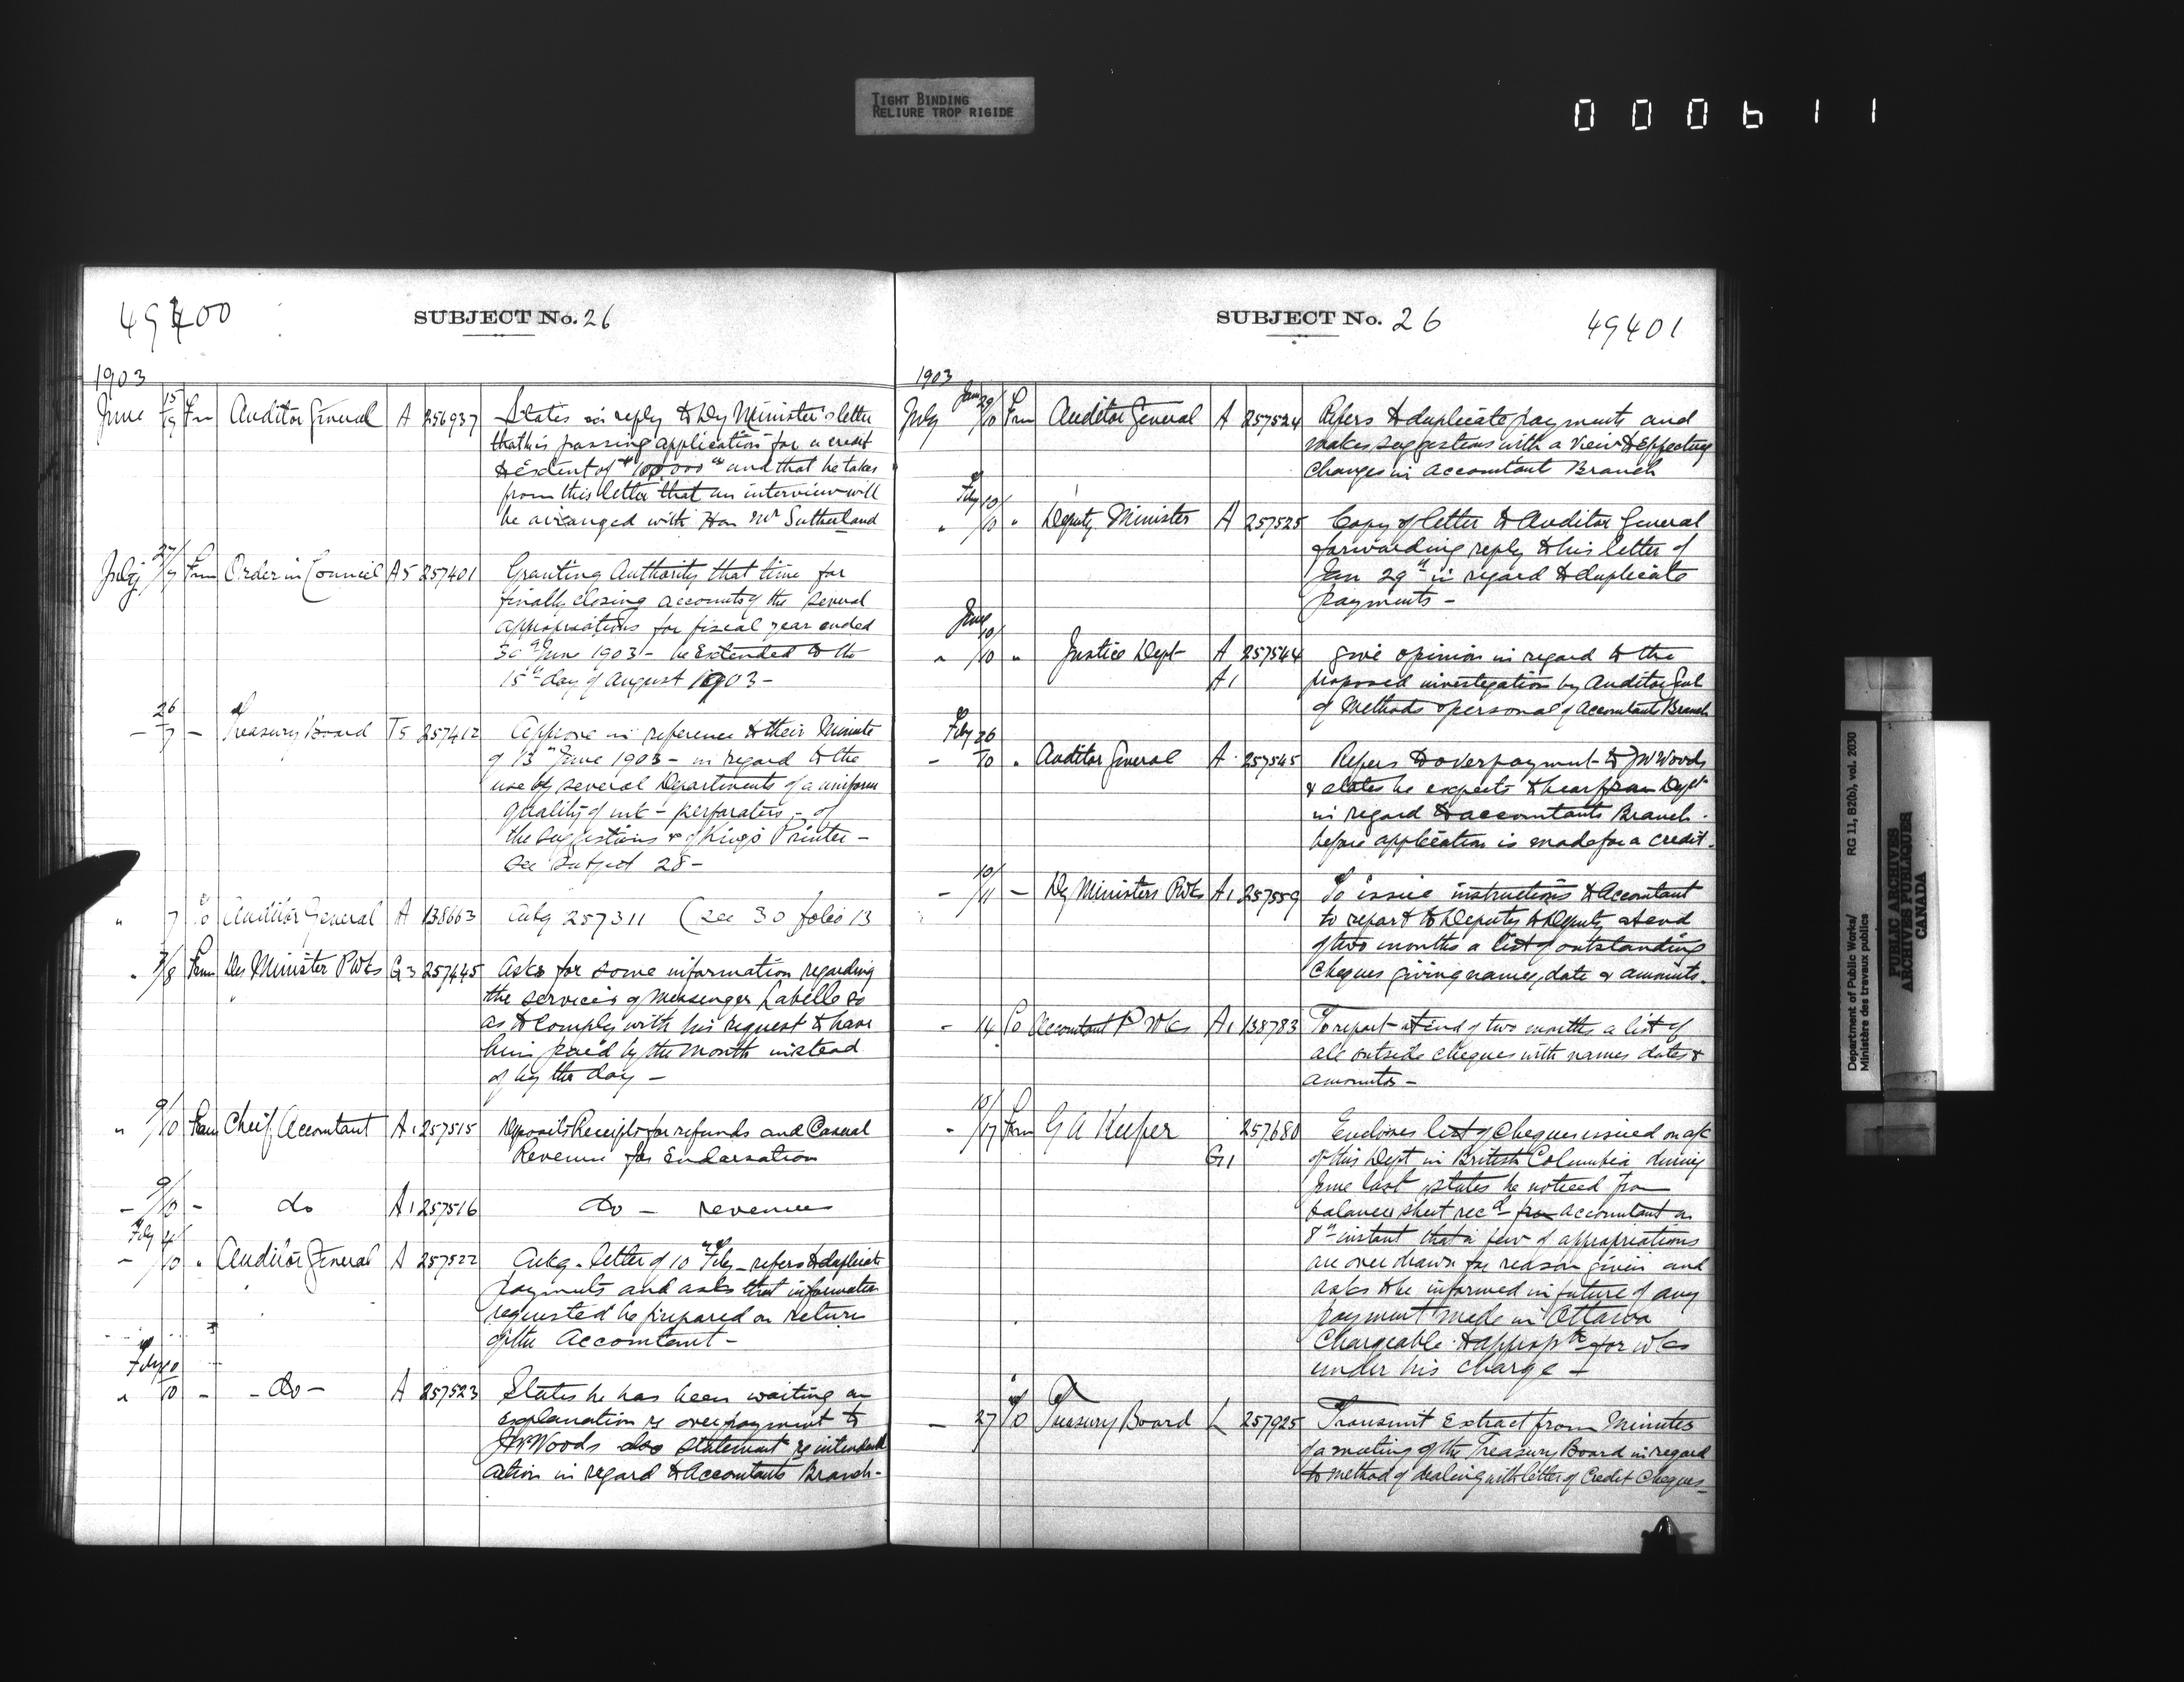 TIGHT BINDING
RELIURE TROP RIGIDE
000611
49400
SUBJECT No. 26
1903
June 15/19 Frm Auditor General A 256937 States in reply to Dy Minister's letter
that his passing application for a credit
to Extent of $100,000 00 and that he takes
from this letter that an interview will
be arranged with Hon Mr Sutherland
July 27/7 Frm Order in Council A5 257401 Granting Authority that time for
finally closing accounts of the several
appropriations for fiscal year ended
30th June 1903 - be Extended to the
15th day of August 1903 -
- 26/7 - Treasury Board T5 257412 Approve in reference to their Minute
of 13th June 1903 - in regard to the
use by several Departments of a uniform
quality of ink - perforaters - of
the suggestions of King's Printer -
see Subject 28 -
" 7 To Auditor General A 138663 Ackg 257311 (see 30 folio 13
" 7/8 Frm Dy Minister P Wks G3 257445 Asks for some information regarding
the services of Messenger Labelle so
as to comply with his request to have
him paid by the month instead
of by the day -
" 9/10 Frm Cheif Accountant A1 257515 Deposit Receipts for refunds and Casual
Revenue for Endorsation
- 9/10 - do A1 257516 do - revenues
Feby 4
- /10 " Auditor General A 257522 Ackg. letter of 10th Feby - refers to duplicate
payments and asks that information
requested be prepared on return
of the Accountant -
Feby 10
" /10 - - do - A 257523 States he has been waiting an
explanation re overpayment to
JW Woods also statement re intended
action in regard to Accountants Branch -
SUBJECT No. 26
49401
1903
July Jan 29/10 Frm Auditor General A 257524 Refers to duplicate payments and
makes suggestions with a view to effecting
changes in Accountant Branch
Feby 10/
" /10 " Deputy Minister A 257525 Copy of letter to Auditor General
forwarding reply to his letter of
Jan 29th in regard to duplicate
payments -
June 10/
" /10 " Justice Dept A 257544 give opinion in regard to the
A1 proposed investigation by Auditor Genl
of Methods & personal of Accountants Branch
Feby 26
- /10 " Auditor General A 257545 Refers to overpayment to JW Woods
& states he expects to hear from Dept
in regard to accountants Branch -
before application is made for a credit.
- 10/11 - Dy Ministers P Wks A1 257559 To issue instructions to Accountant
to report to Deputy at end
of two months a list of outstanding
Cheques giving names, date & amounts.
- 14 To Accountant P Wks A1 138783 To report at end of two months a list of
all outside cheques with names dates &
amounts -
- 10/17 Frm G A Keefer 257680 Encloses list of cheques issued on a/c
G11 of this Dept in British Columbia during
June last states he noticed from
balance sheet recd from accountant on
8th instant that a few of appropriations
are over drawn for reason given and
asks to be informed in future of any
payment made in Ottawa
Chargeable to appropts for wks
under his charge -
- 27 To Treasury Board L 257925 Transmit Extract from Minutes
of a meeting of the Treasury Board in regard
to method of dealing with letter of Credit Cheques -
Department of Public Works/
Ministère des travaux publics
RG 11, B2(b), vol. 2030
PUBLIC ARCHIVES
ARCHIVES PUBLIQUES
CANADA